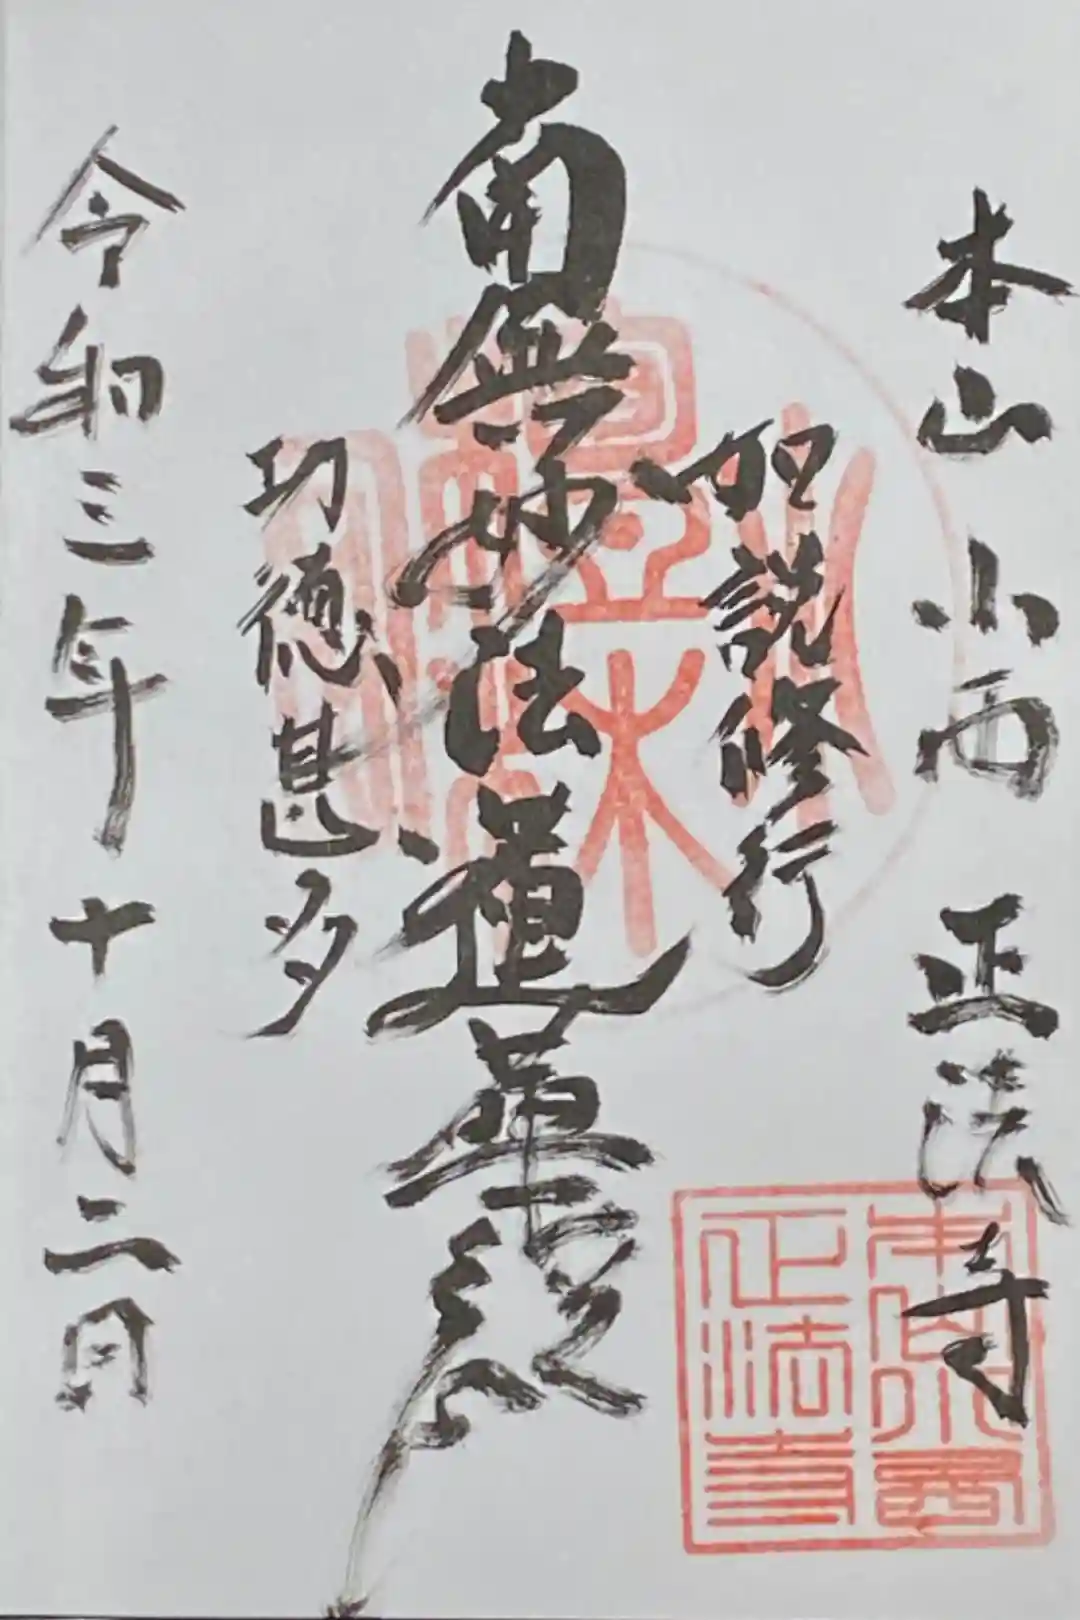 本山 小西 正法寺
如説修行
南無妙法蓮華経
功徳甚多
令和三年十月二日
本山小西
正法寺